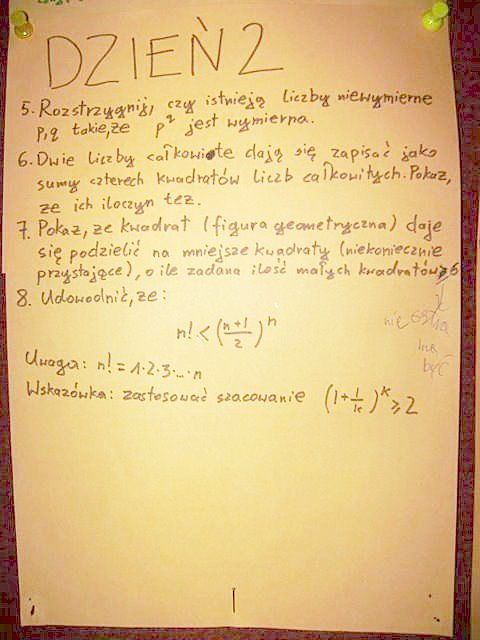 DZIEŃ 2
5. Rozstrzygnij, czy istnieją liczby niewymierne
p,q takie,że p^q jest wymierna.
6. Dwie liczby całkowite dają się zapisać jako
sumy czterech kwadratów liczb całkowitych. Pokaż,
że ich iloczyn też.
7. Pokaż, że kwadrat (figura geometryczna) daje
się podzielić na mniejsze kwadraty (niekoniecznie
przystające), o ile zadana ilość małych kwadratów ≥ 6
8. Udowodnić, że:
nie ostra
ma
być
n! < ((n+1)/2)^n
Uwaga: n! = 1·2·3·...·n
Wskazówka: zastosować szacowanie (1+1/k)^k ≥ 2